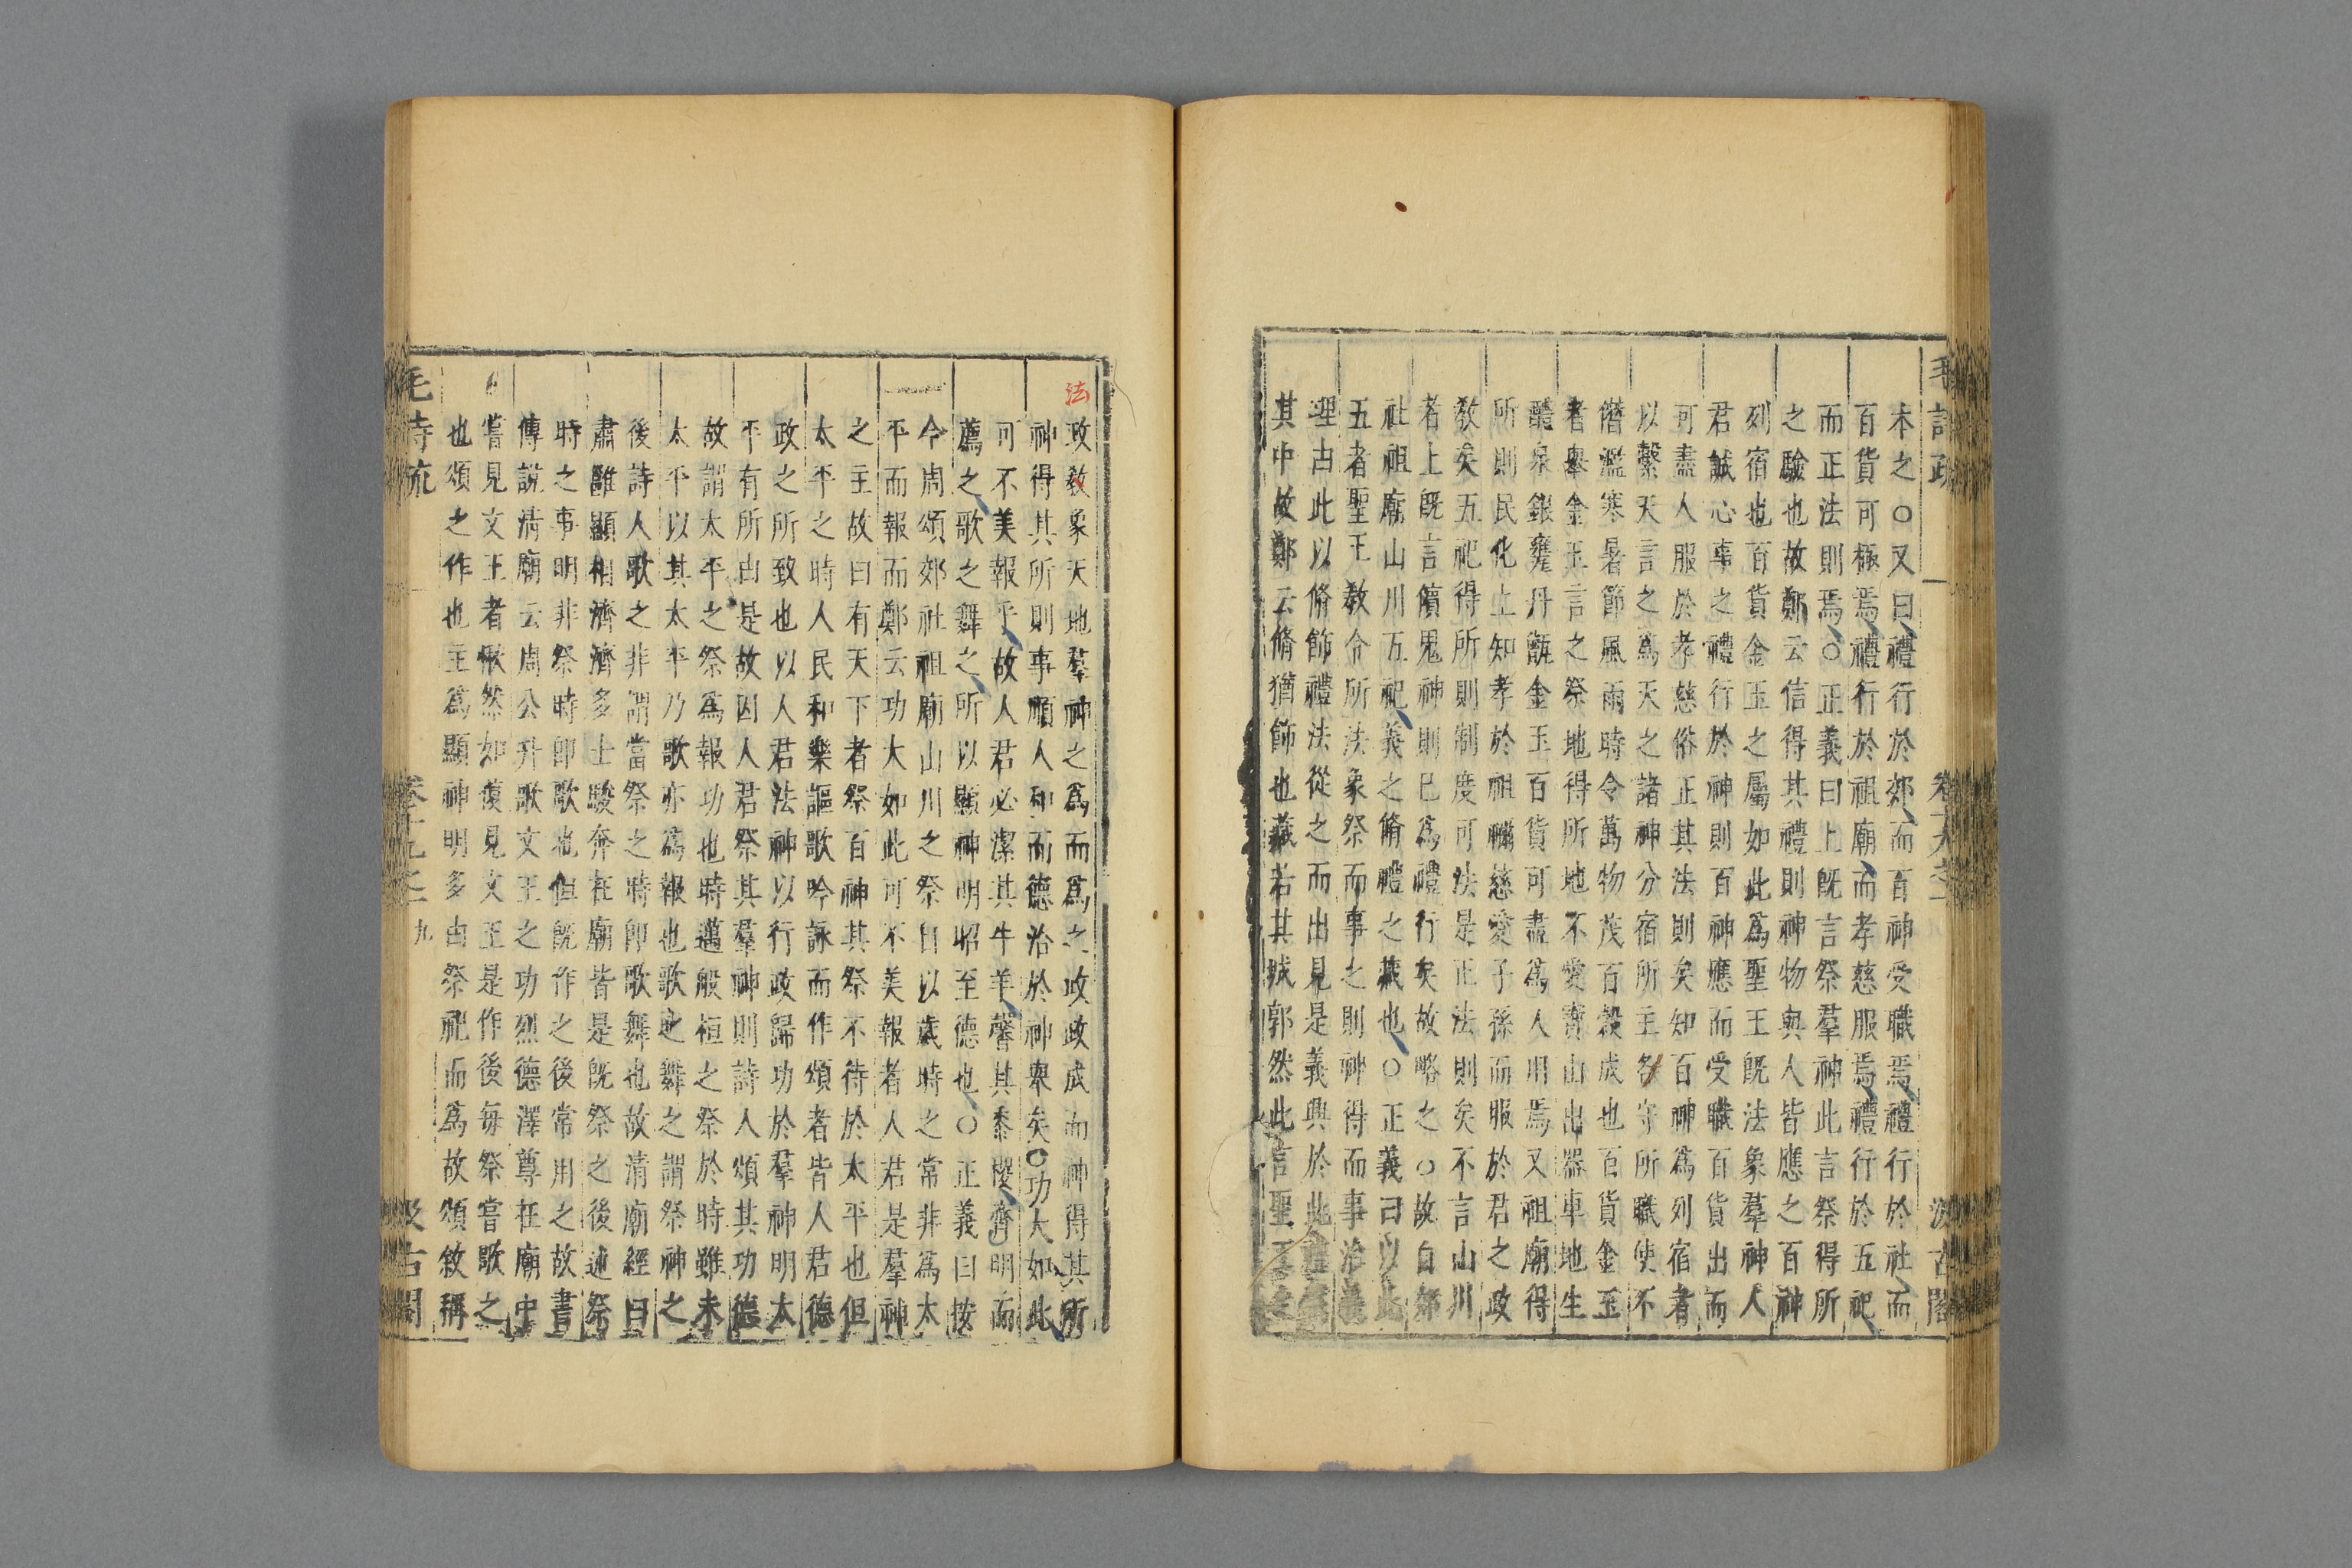 本之○又曰禮行於郊而百神受職焉禮行於社而
百貨可極焉禮行於祖廟而孝慈服焉禮行於五祀
而正法則焉○正義曰上既言祭羣神此言祭得所
之驗也故鄭云信得其禮則神物與人皆應之百神
列宿也百貨金玉之屬如此爲聖王既法象羣神人
君誠心事之禮行於神則百神應而受職百貨出而
可盡人服於孝慈俗正其法則矣知百神爲列宿者
以繫天言之爲天之諸神分宿所主各守所職使不
僭濫寒暑節風雨時令萬物茂百穀成也百貨金玉
者舉金玉言之祭地得所地不愛寶山出器車地生
醴泉銀甕丹甑金玉百貨可盡爲人用焉又祖廟得
所則民化上知孝於祖禰慈愛子孫而服於君之政
敎矣五祀得所則制度可法是正法則矣不言山川
者上旣言儐鬼神則已爲禮行矣故略之○故自郊
社祖廟山川五祀義之脩禮之藏也○正義曰以此
五者聖王敎令所法象祭而事之則神得而事治義
理古此以脩飾禮法從之而出見是義興於此
其中故鄭云脩猶飾也藏若其城郭然此言聖王
毛詩疏 卷十九之一 汲古閣
法
政敎象天地羣神之爲而爲之政政成而神得其所
神得其所則事順人和而德洽於神衆矣○功大如此
可不美報乎故人君必潔其牛羊馨其黍稷齊明而
薦之歌之舞之所以顯神明昭至德也○正義曰按
今周頌郊社祖廟山川之祭自以歲時之常非爲太
平而報而鄭云功大如此可不美報者人君是羣神
之主故曰有天下者祭百神其祭不待於太平也但
太平之時人民和樂謳歌吟詠而作頌者皆人君德
政之所致也以人君法神以行政歸功於羣神明太
平有所由是故因人君祭其羣神則詩人頌其功德
故謂太平之祭爲報功也時邁般桓之祭於時雖未
太平以其太平乃歌亦爲報也歌之舞之謂祭神之
後詩人歌之非謂當祭之時卽歌舞也故清廟經曰
肅雝顯相濟濟多士駿奔在廟皆是旣祭之後述祭
時之事明非祭時卽歌也但旣作之後常用之故書
傳說清廟云周公升歌文王之功烈德澤尊在廟中
嘗見文王者愀然如復見文王是作後每祭嘗歌之
也頌之作也主爲顯神明多由祭祀而爲故頌敘稱
毛詩疏 卷十九之一 九 汲古閣